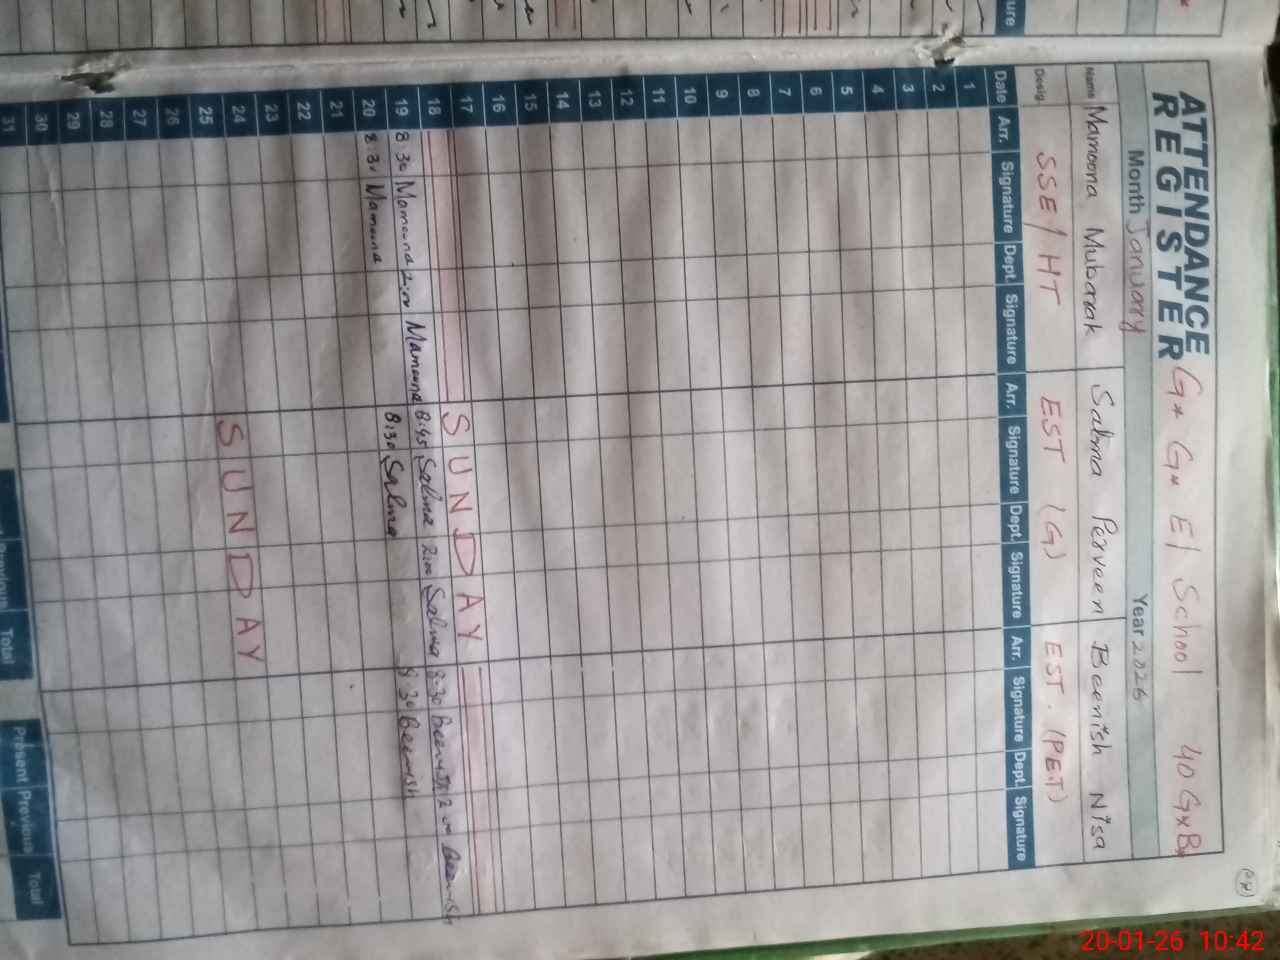 ATTENDANCE REGISTER G* G* El School 40 G*B
Month January Year 2026
Name Mamoona Mubarak Salma Perveen Beenish Nisa
Desig. SSE/HT EST (G) EST. (PET)
Date Arr. Signature Dept. Signature Arr. Signature Dept. Signature Arr. Signature Dept. Signature
1
2
3
4
5
6
7
8
9
10
11
12
13
14
15
16
17 SUNDAY
18
19 8:30 Mamoona 2:00 Mamoona 8:45 Salma 2:00 Salma 8:30 Beenish 2:00 Beenish
20 8:30 Mamoona 8:30 Salma 8:30 Beenish
21
22
23
24 SUNDAY
25
26
27
28
29
30
31
Previous Total Present Previous Total
20-01-26 10:42